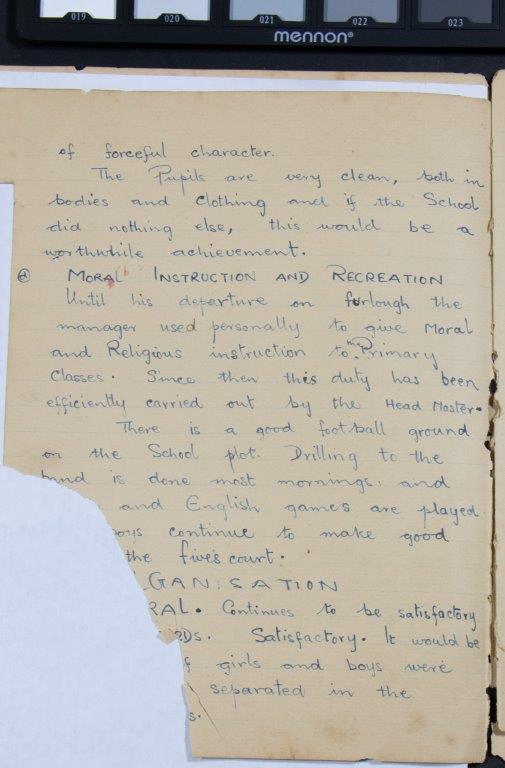 019 020 021 022 023
mennon®
of forceful character.
The Pupils are very clean, both in
bodies and Clothing and if the School
did nothing else, this would be a
worthwhile achievement.
d MORAL INSTRUCTION AND RECREATION
Until his departure on furlough the
manager used personally to give Moral
and Religious instruction to the Primary
Classes. Since then this duty has been
efficiently carried out by the Head Master.
There is a good football ground
on the School plot. Drilling to the
band is done most mornings, and
and English games are played.
boys continue to make good
the fives court.
GANISATION
RAL. Continues to be satisfactory
RDS. Satisfactory. It would be
f girls and boys were
separated in the
s.